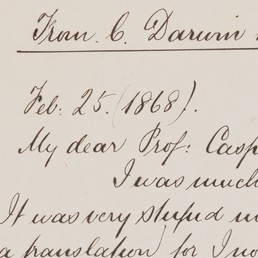 From. C. Darwin
Feb: 25. (1868).
My dear Prof: Casp
I was much
It was very stupid in
a translation, for I no